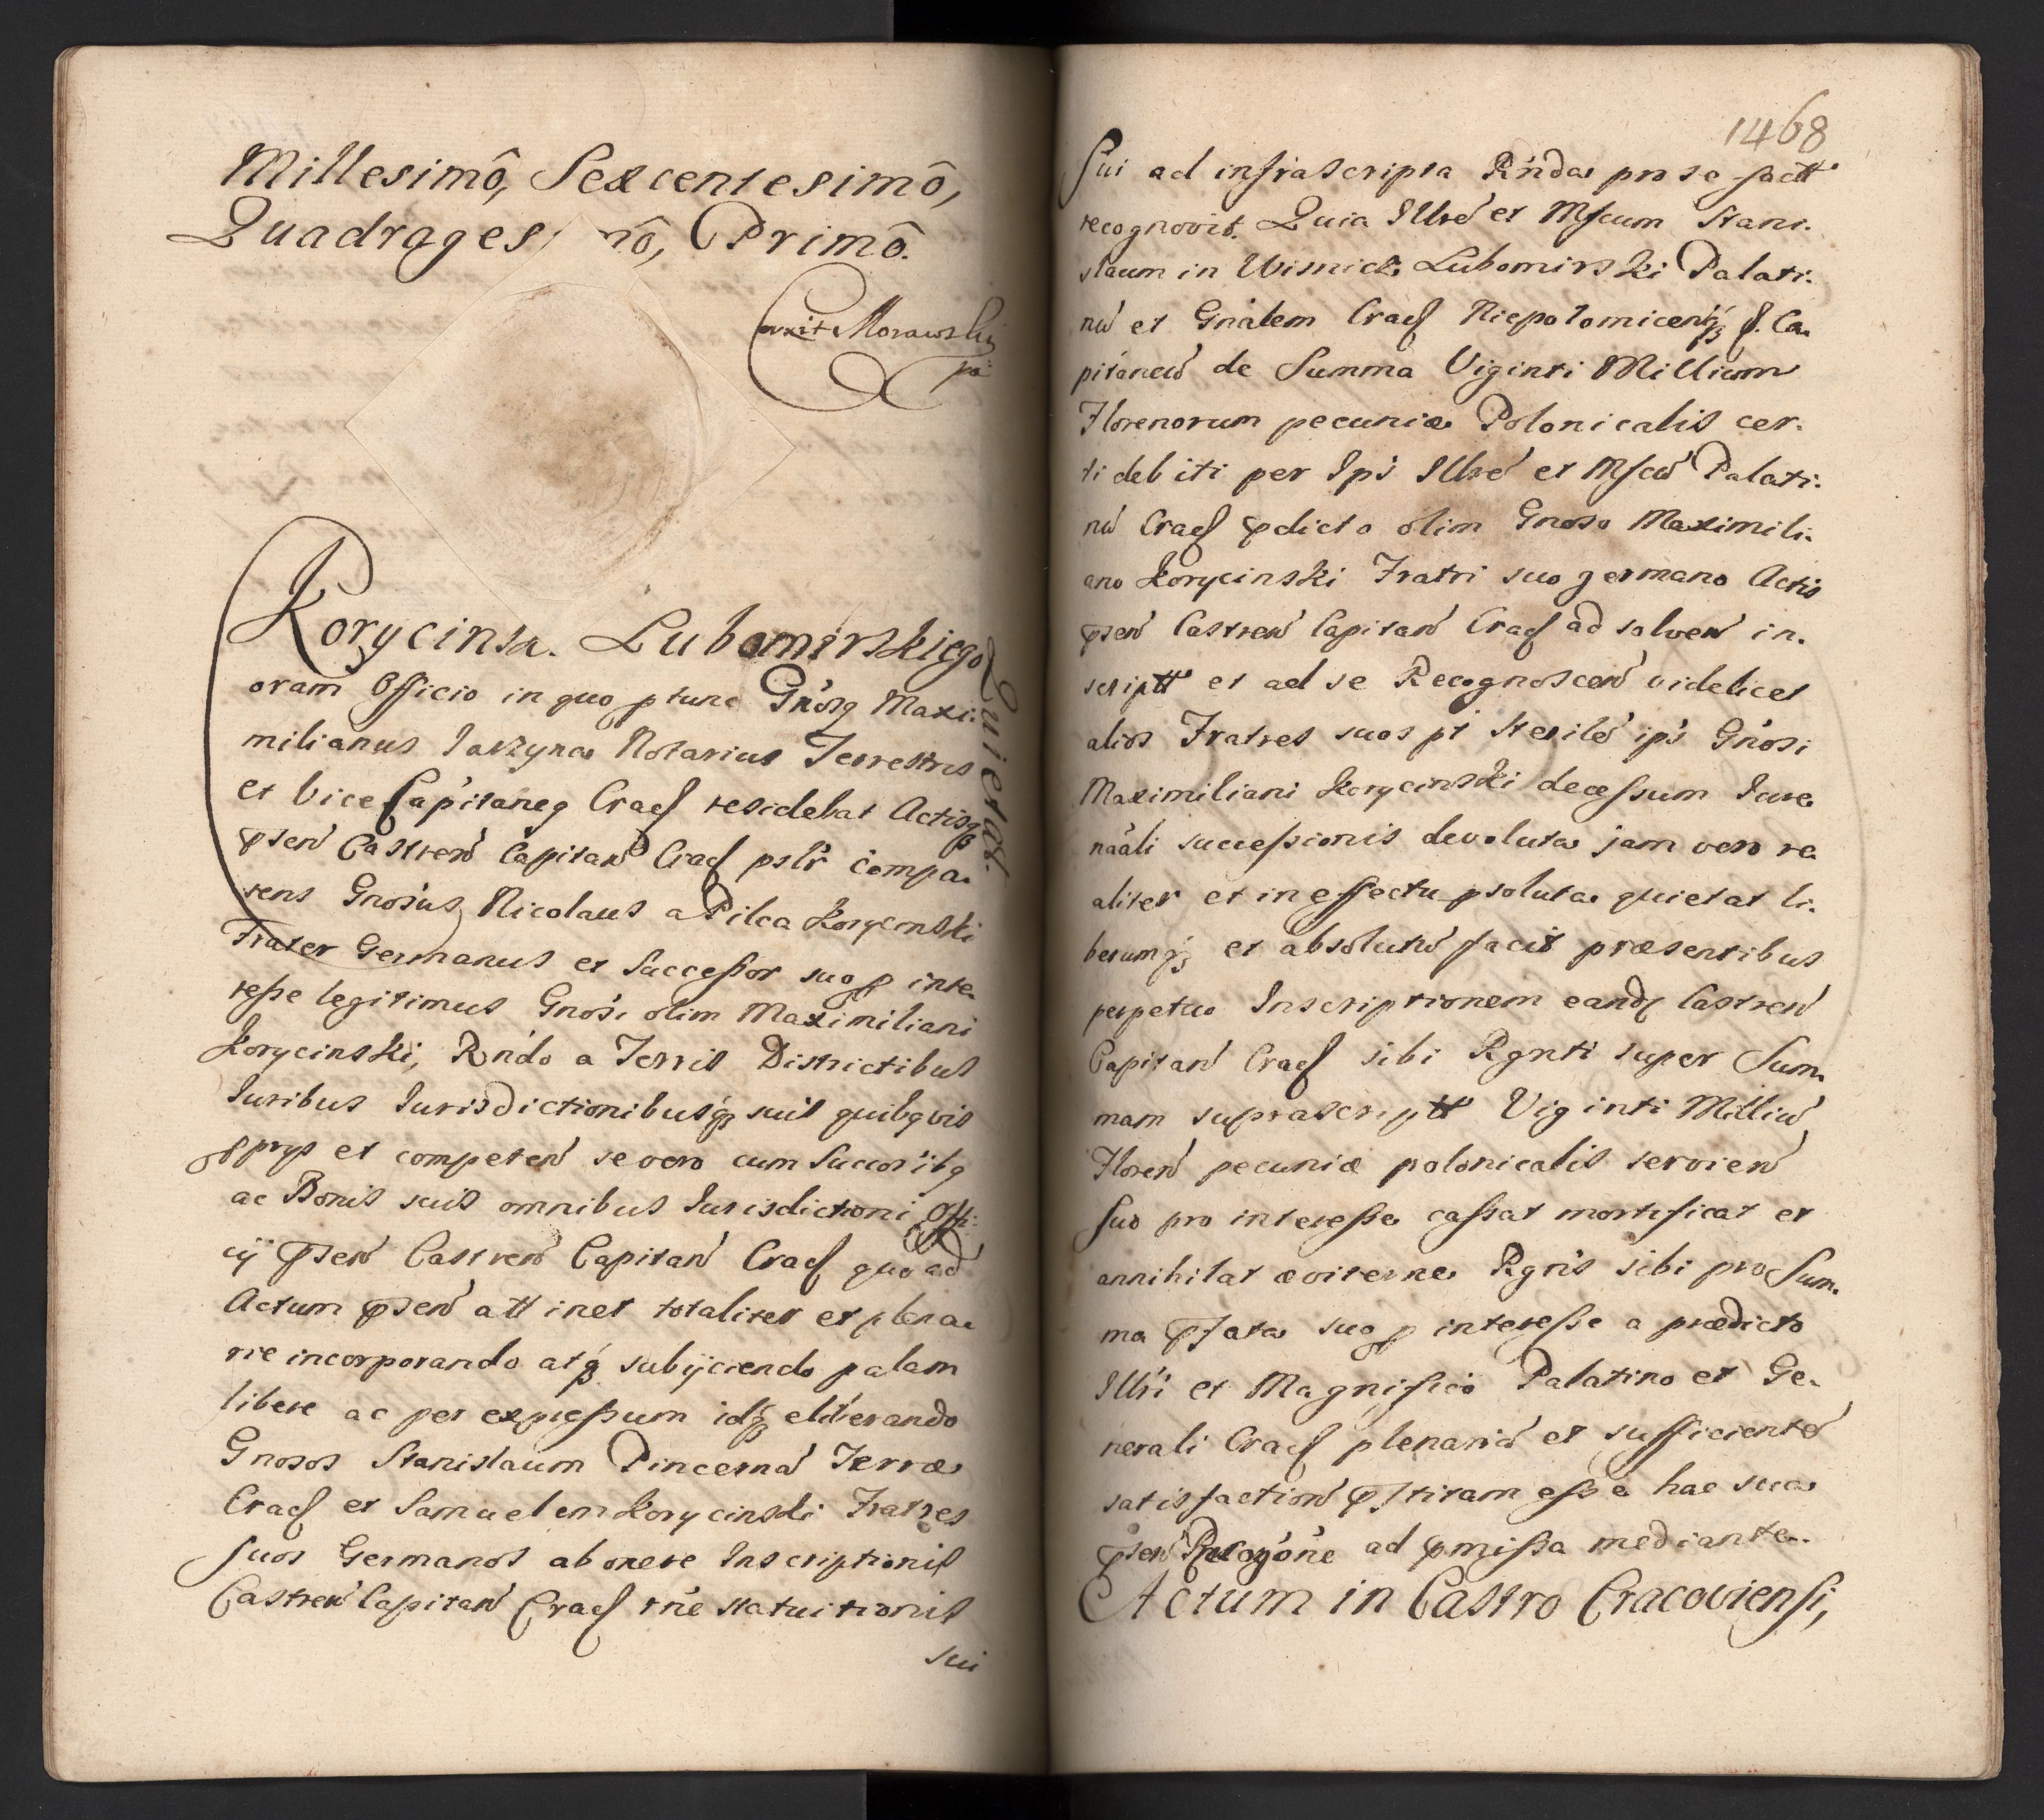 Millesimô, Sexcentesimô,
Quadrages mô, Primô.
Morawski
Korycinska. Lubomirskiego
Quietat.
oram Officio in quo ptunc Gnosq Maxi-
milianus Jarzyna Notarius Terrestris
et Vice Capitaneq Cracſ residebat Actisqꝫ
pñsen Castren Capitan Cracſ pslr compa-
rens Gnosus Nicolaus a Pilca Korycinski
Frater Germanus et Succeſsor suo p inte-
reſse legitimus Gnosi olim Maximiliani
Korycinski, Rndo a Terris Districtibus
Iuribus Iurisdictionibusqꝫ suis quibqvis
pprys et competen se vero cum Succoribq
ac Bonis suis omnibus Iurisdictioni Offi-
cij pñsen Castren Capitan Cracſ quoad
Actum pñsen attinet totaliter et plena-
rie incorporando atqꝫ subijciendo palam
libere ac per expreſsum idqꝫ eliberando
Gnosos Stanislaum Pincerna Terræ
Cracſ et Samuelem Korycinski Fratres
suos Germanos ab onere Inscriptionis
Castren Capitan Cracſ rne statuitionis
sui
1468
Sui ad infrascripta Rnda pro se factt
recognovit. Quia Illre et Mfcum Stani-
slaum in Wisnicz Lubomirski Palati-
nu et Gnalem Cracſ Niepolomicenqꝫ &. Ca-
pitaneu de Summa Viginti Millium
Florenorum pecuniæ Polonicalis cer-
ti debiti per Ips Illre et Mfcu Palati-
nu Cracſ pdicto olim Gnoso Maximili-
ano Korycinski Fratri suo germano Actis
pñsen Castren Capitan Cracſ ad solven in-
scriptt et ad se Recognoscen videlicet
alios Fratres suos pt sterile ips Gnosi
Maximiliani Korycinski deceſsum Iure
naali succeſsionis devoluta jam vero re-
aliter et in effectu psoluta quietat li-
berumqꝫ et absolutu facit præsentibus
perpetuo Inscriptionem eandſ Castren
Capitan Cracſ sibi Rgnti super Sum-
mam suprascriptt Viginti Milliu
Floren pecuniæ polonicalis servien
Suo pro intereſse caſsat mortificat et
annihilat æviterne Rgnis sibi pro Sum-
ma pfata suo p intereſse a prædicto
Illri et Magnifico Palatino et Ge-
nerali Cracſ plenaria et sufficiente
satisfaction pſtitam eſse hac sua
pñsen Recogone ad pmiſsa mediante.
Actum in Castro Cracoviensi,